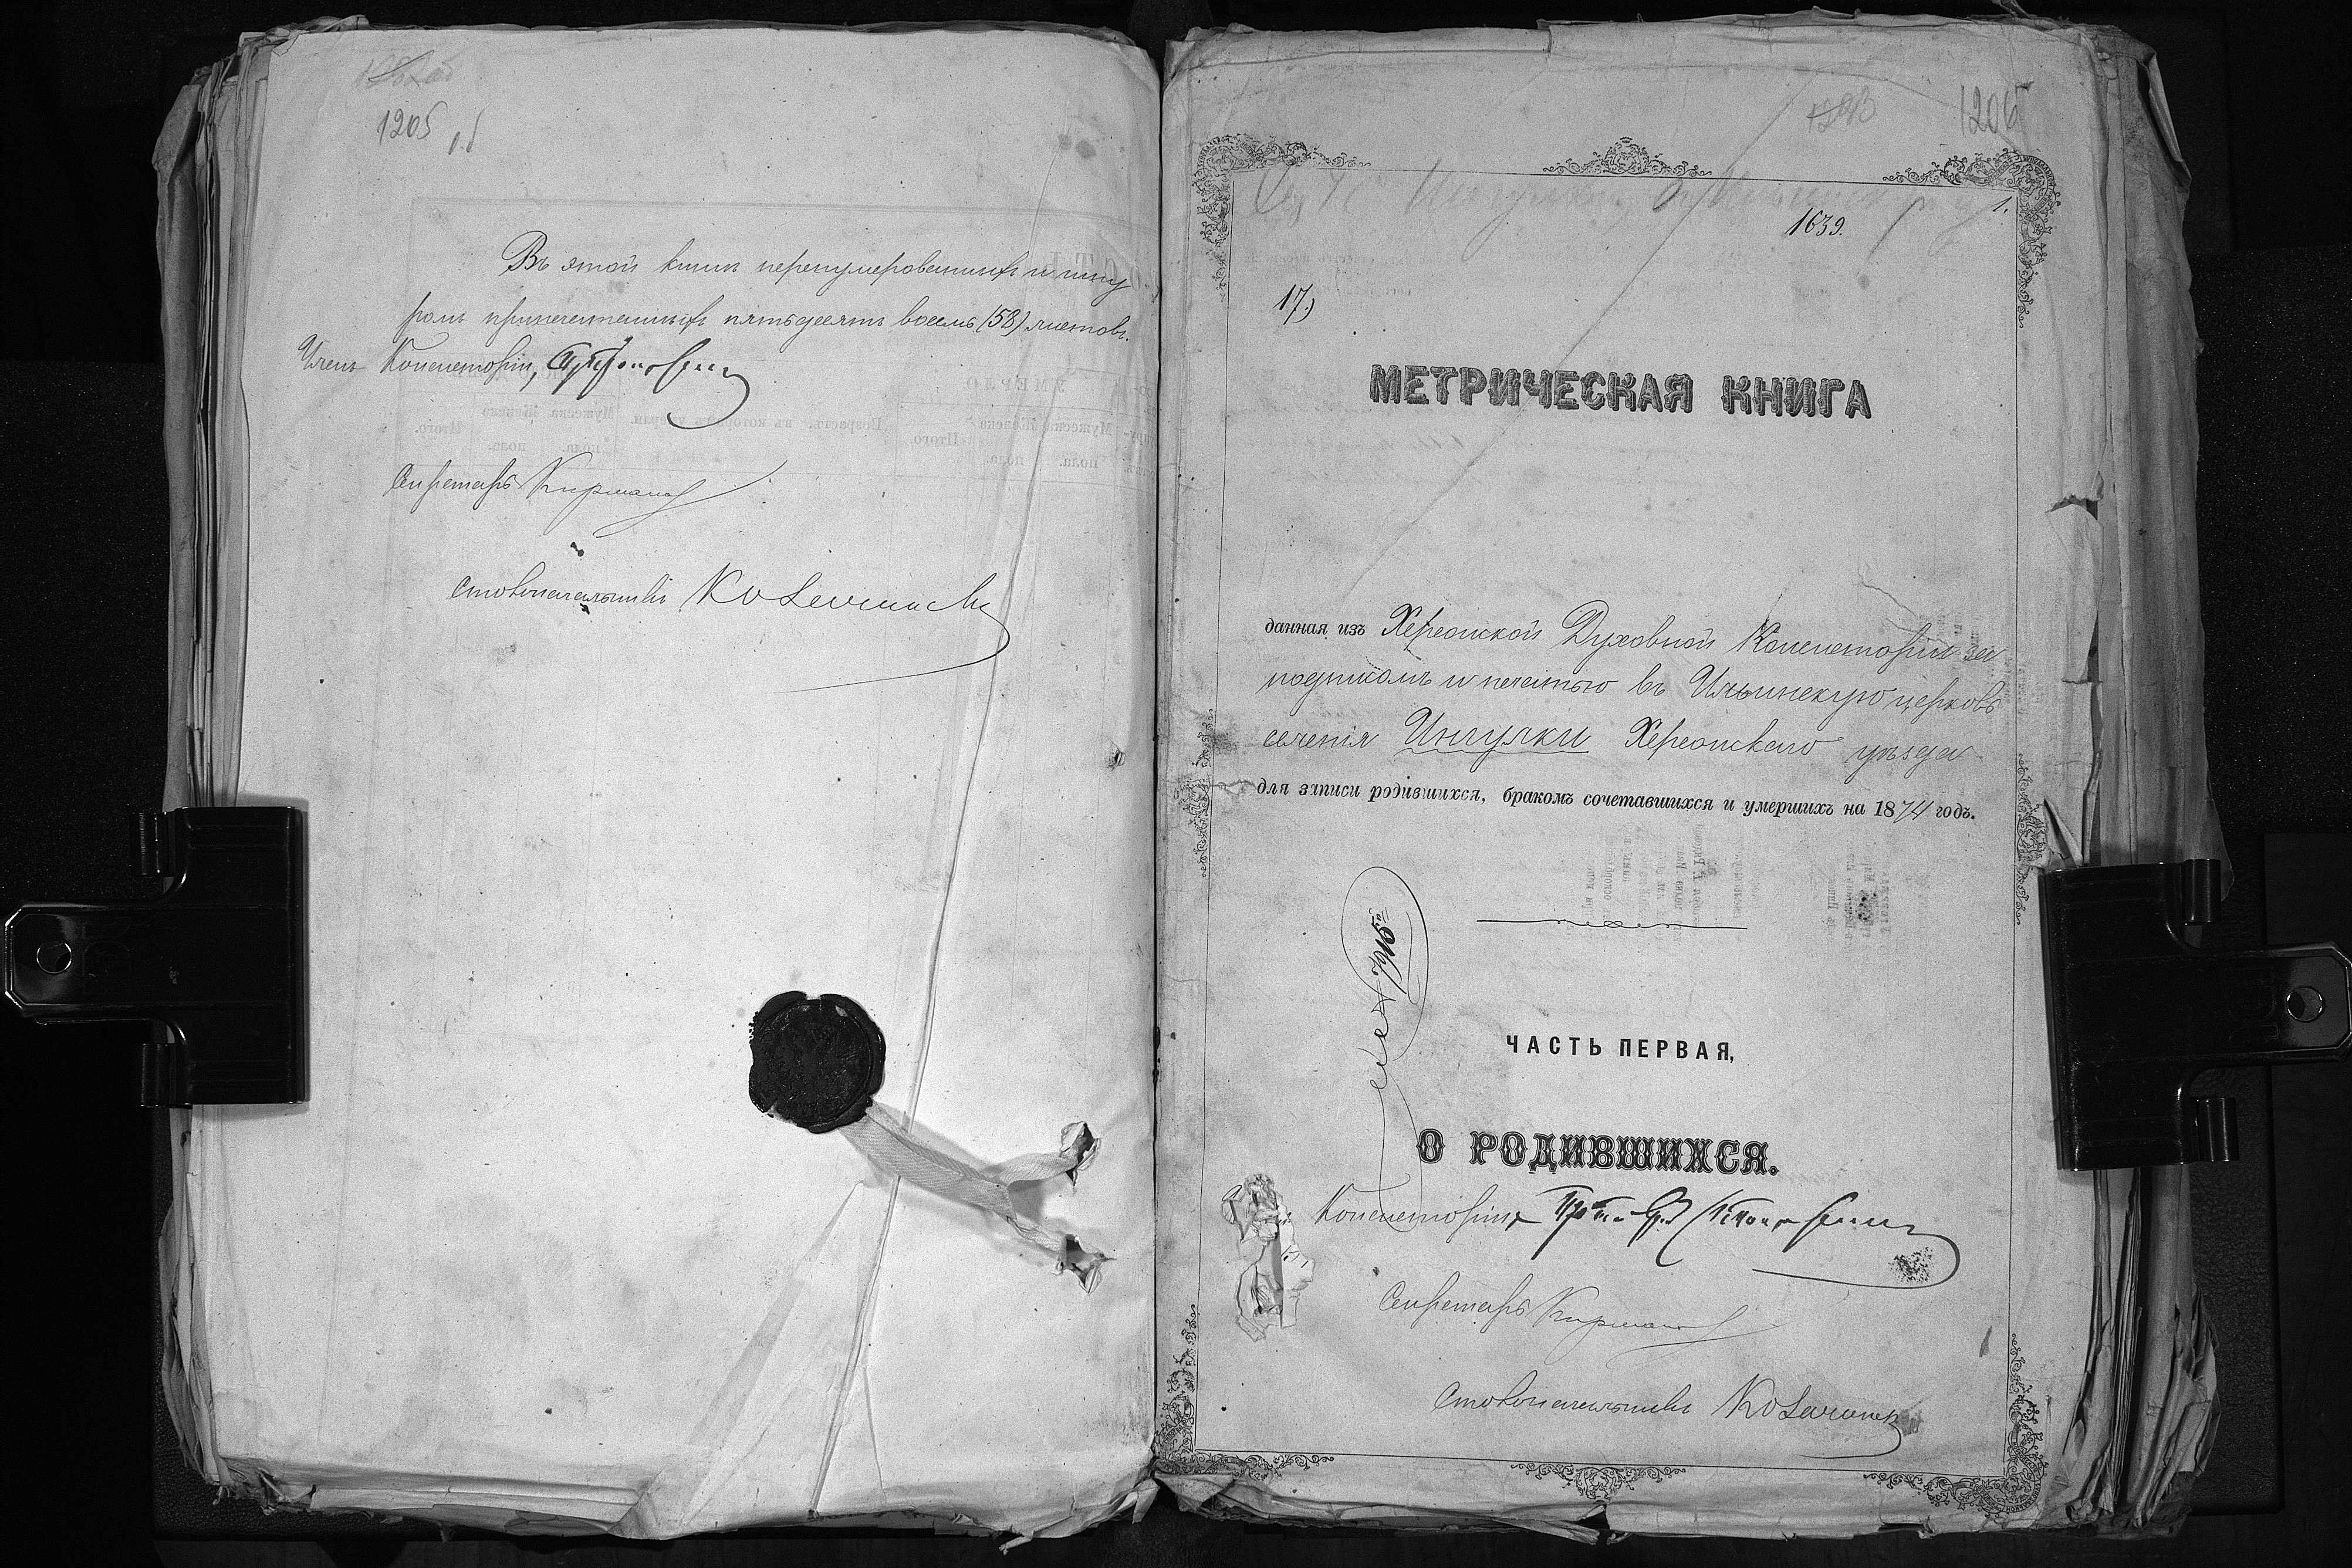 1205 об
Въ этой книгѣ перенумерованныхъ и шну
ромъ припечатанныхъ пятьдесятъ восемь (58) листовъ.
Членъ Консисторіи,
Секретарь
Столоначальникъ
1206
1.
1639.
17)
МЕТРИЧЕСКАЯ КНИГА
данная изъ Херсонской Духовной Консисторіи за
подписомъ и печатью въ Ильинскую церковь
селенія Ингулки Херсонскаго уѣзда
для записи родившихся, бракомъ сочетавшихся и умершихъ на 1874 годъ.
ЧАСТЬ ПЕРВАЯ,
О РОДИВШИХСЯ.
Консисторіи
Секретарь
Столоначальникъ